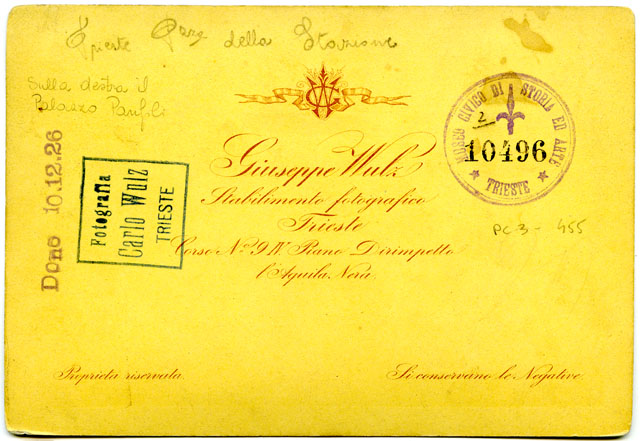 Trieste Piazza della Stazione
Sulla destra il
Palazzo Panfili
GW
MUSEO CIVICO DI STORIA ED ARTE
2
10496
★ TRIESTE ★
PC 3 - 455
Dono 10.12.26
Fotografia
Carlo Wulz
TRIESTE
Giuseppe Wulz
Stabilimento fotografico
Trieste
Corso No. 9 IV. Piano Dirimpetto
l'Aquila Nera
Proprietà riservata
Si conservano le Negative